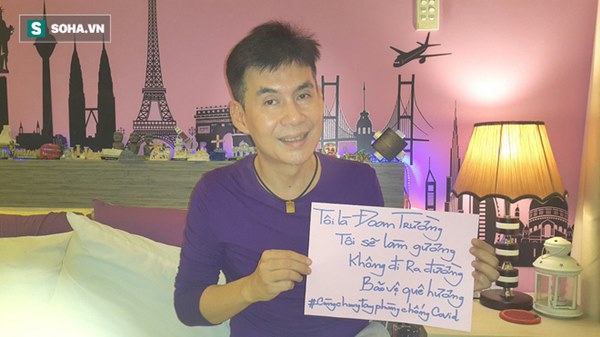 SOHA.VN
Tôi là Đoan Trường
Tôi sẽ làm gương
Không đi Ra đường
Bảo vệ quê hương
#Cùng chung tay phòng chống Covid